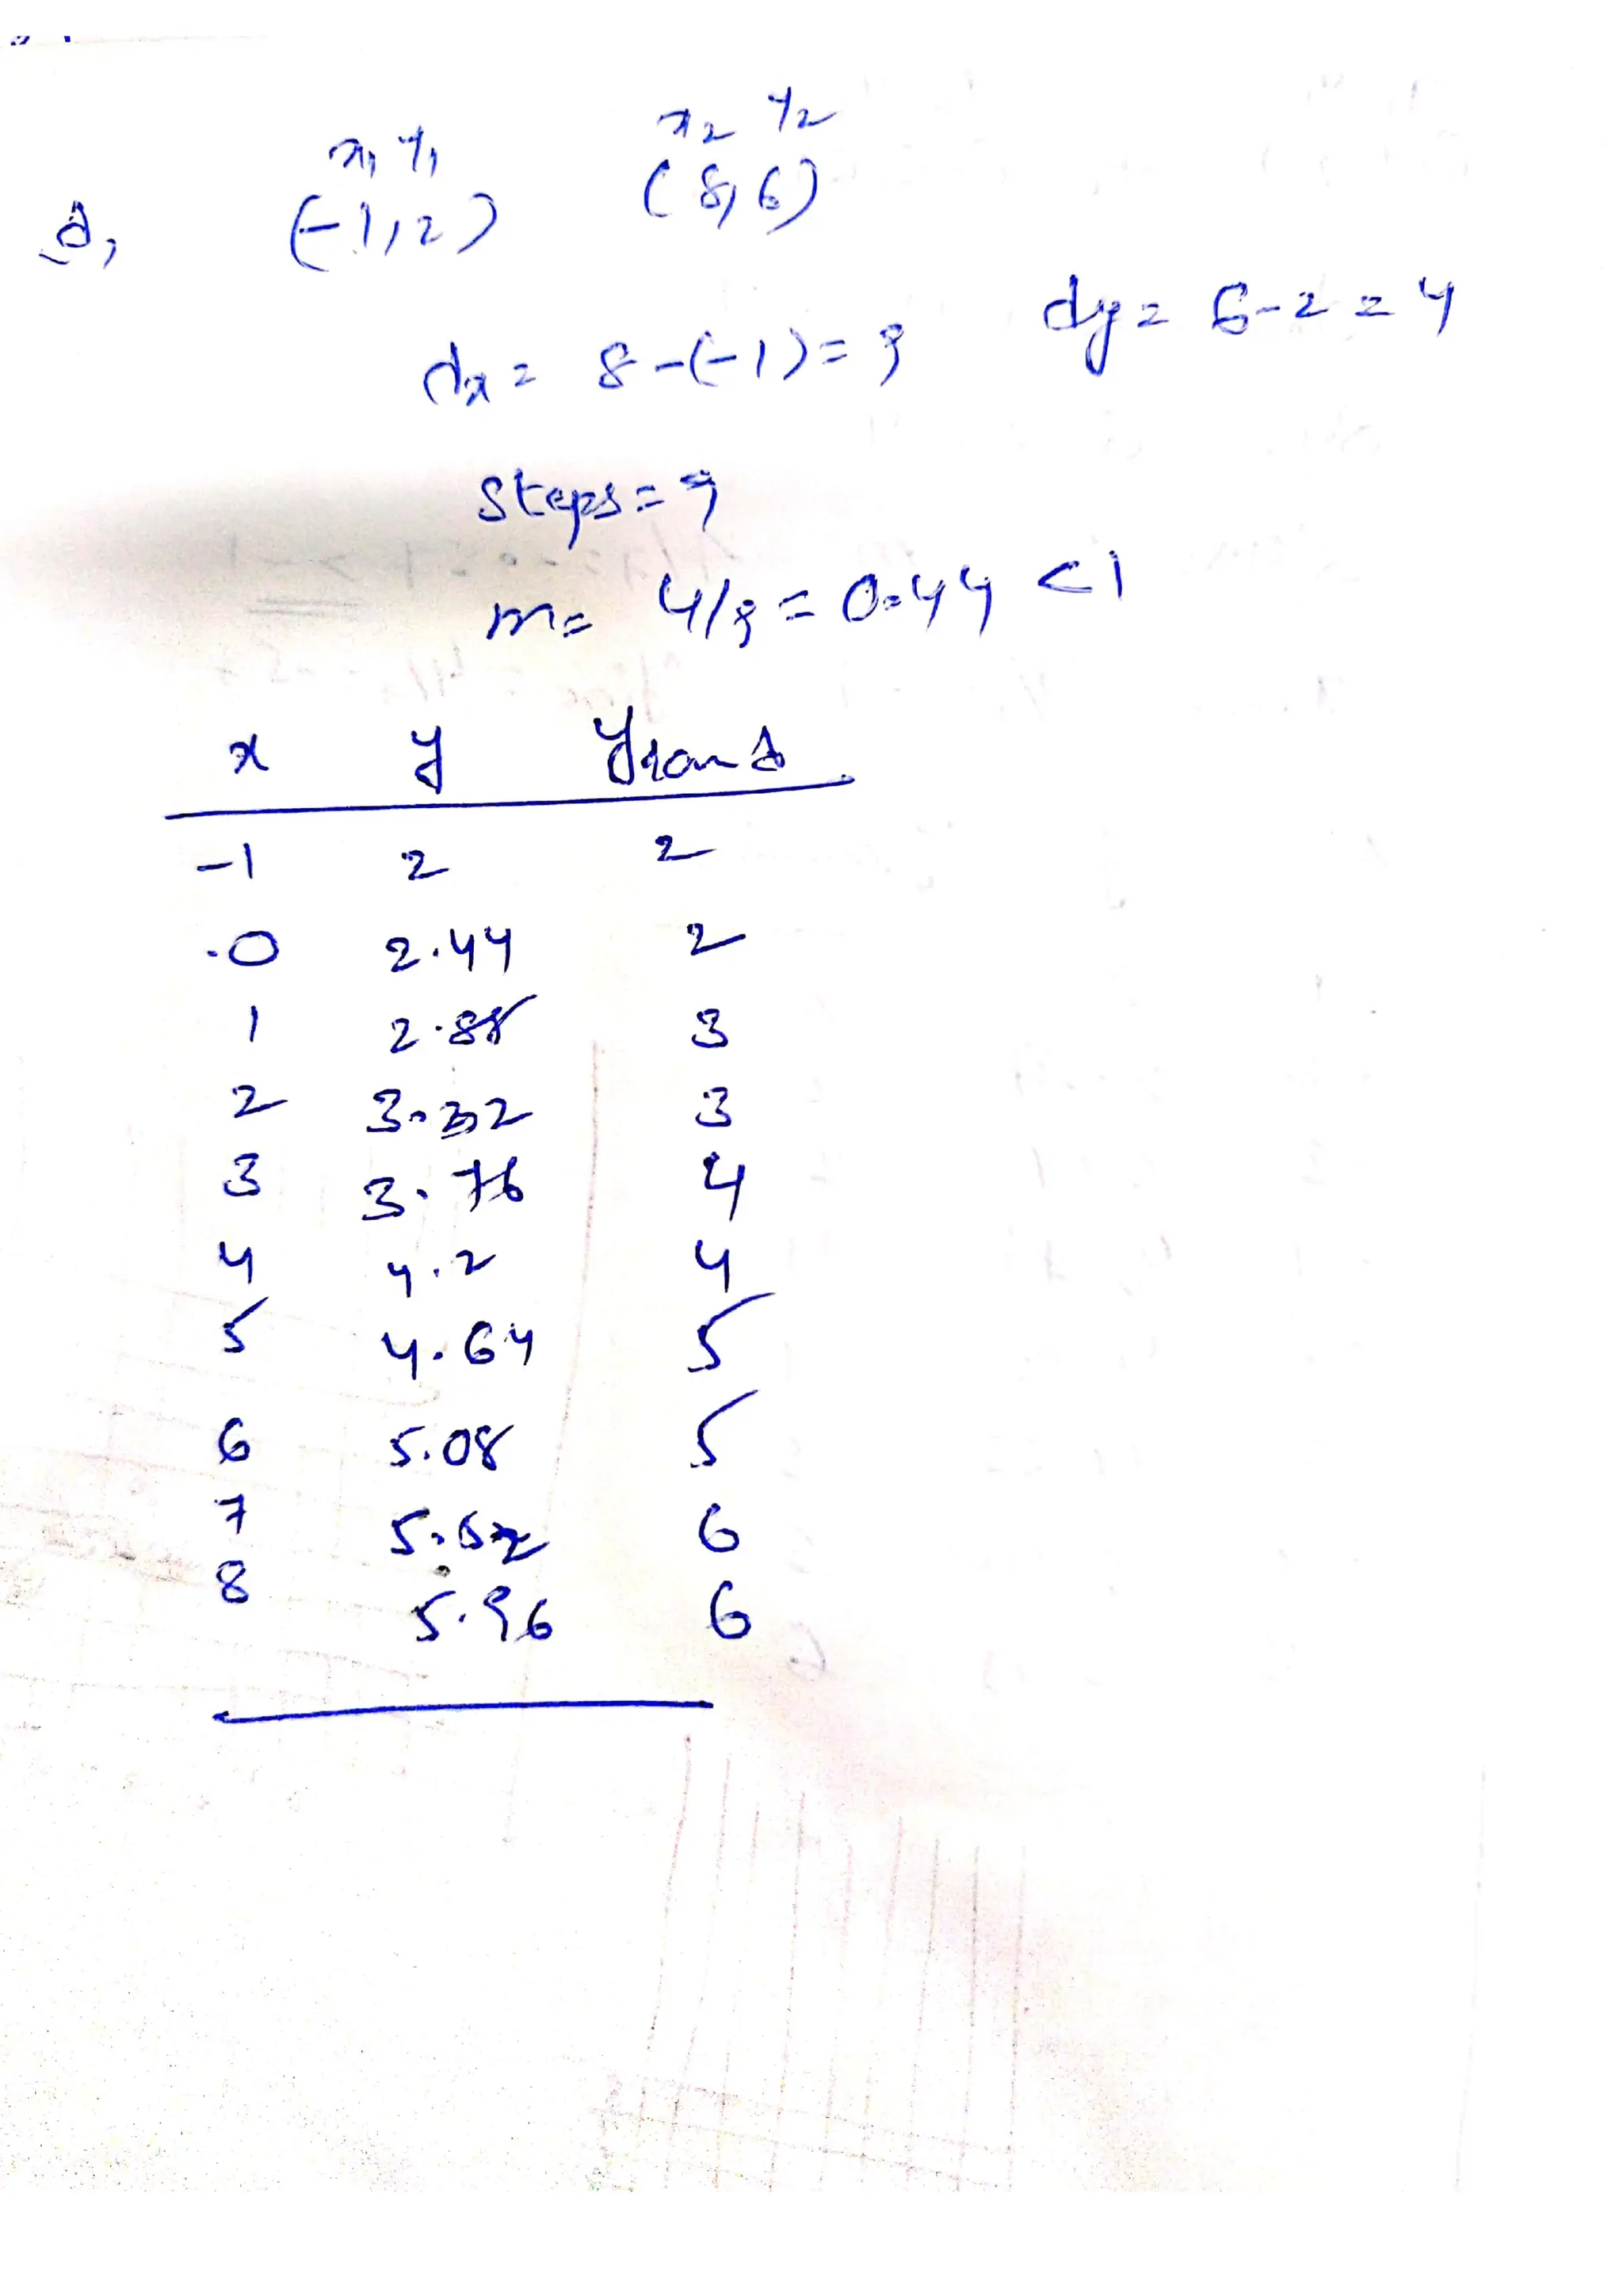 x1 y1 x2 y2
(-1,2) (8,6)
dx = 8-(-1) = 9 dy = 6-2 = 4
Steps = 9
m = 4/9 = 0.44 <1
x y yround
-1 2 2
0 2.44 2
1 2.88 3
2 3.32 3
3 3.76 4
4 4.2 4
5 4.64 5
6 5.08 5
7 5.52 6
8 5.96 6